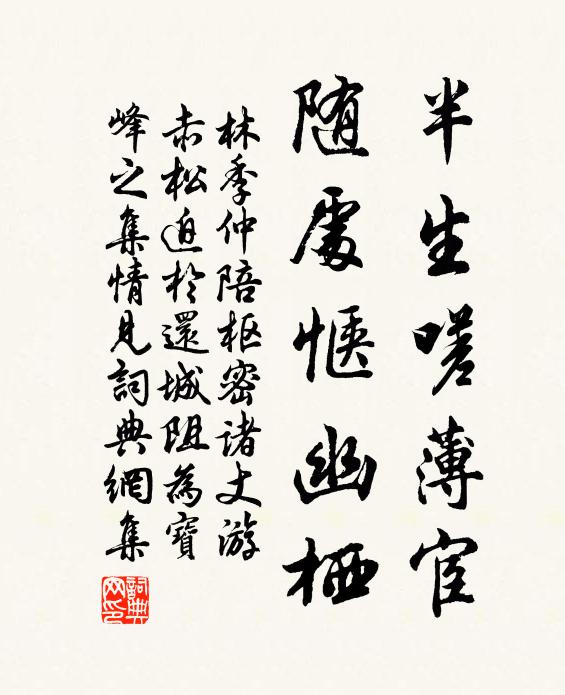 半生嗟薄宦
随處惬幽栖
林季仲陪枢密诸丈游
赤松迫於還城阻為寶
峰之集情見詞典網集
詞典网印